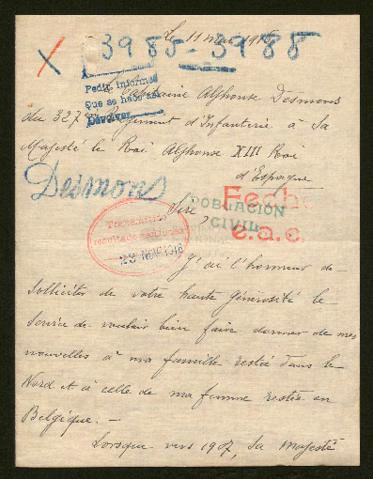 Le 11 mai 1916
3985 - 3988
Pedir informes
Que se hace así
Devolver
Le Capitaine Alphonse Desmons
du 327e Régiment d'Infanterie à Sa
Majesté le Roi Alphonse XIII Roi
d'Espagne
Desmons
Fecho
POBLACIÓN
CIVIL
e.a.c.
Sire,
Transmitido
resultado
23 NOV. 1916
J'ai l'honneur de
solliciter de votre haute générosité le
service de vouloir bien faire donner de mes
nouvelles à ma famille restée dans le
Nord et à celle de ma femme restée en
Belgique. —
Lorsque vers 1907, Sa Majesté